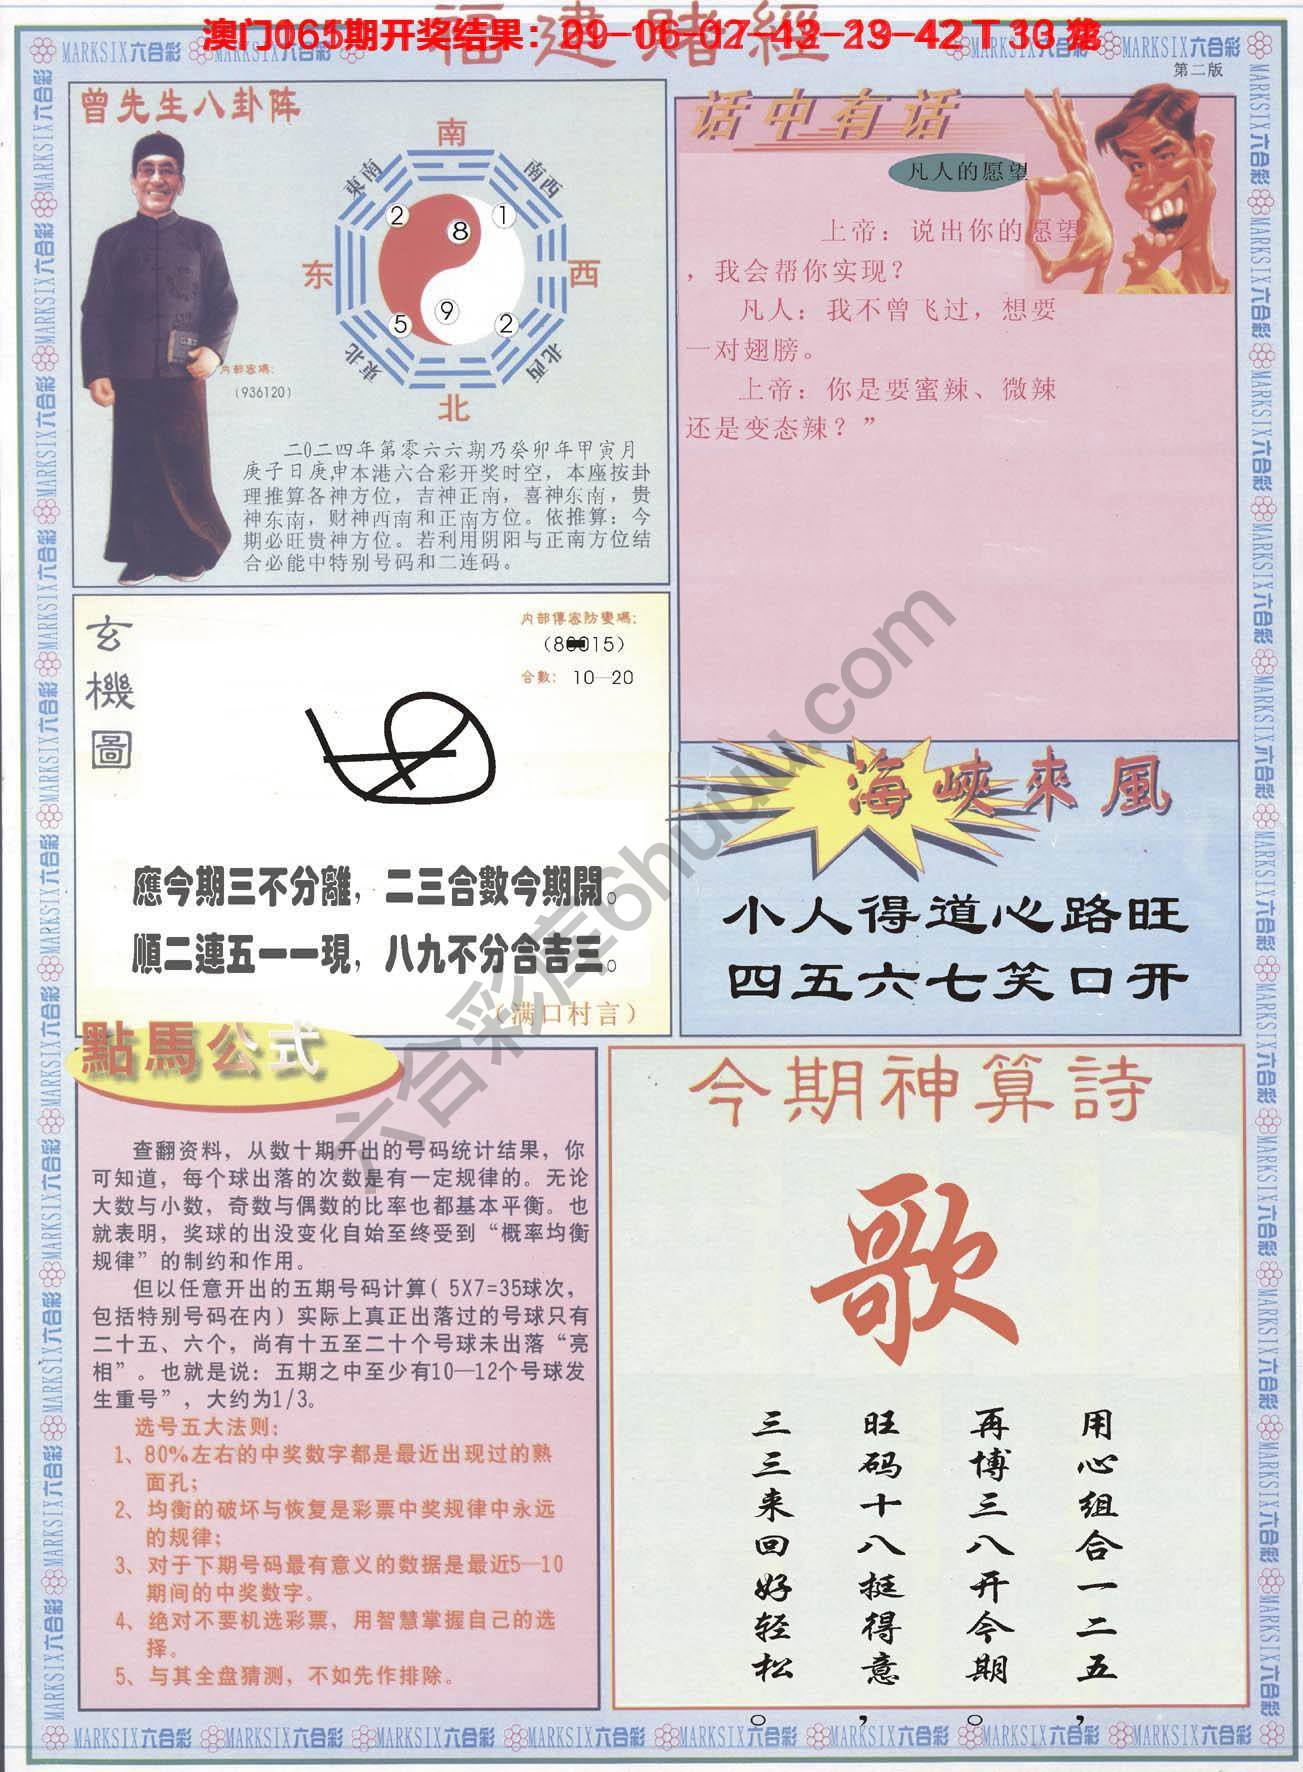 福建赌經
第二版
曾先生八卦阵
南
東南
南西
2
8
1
东
西
5
9
2
東北
北西
北
内部密碼：
（936120）
二0二四年第零六六期乃癸卯年甲寅月
庚子日庚申本港六合彩开奖时空，本座按卦
理推算各神方位，吉神正南，喜神东南，贵
神东南，财神西南和正南方位。依推算：今
期必旺贵神方位。若利用阴阳与正南方位结
合必能中特别号码和二连码。
话中有话
凡人的愿望
上帝：说出你的愿望
，我会帮你实现？
凡人：我不曾飞过，想要
一对翅膀。
上帝：你是要蜜辣、微辣
还是变态辣？”
玄
機
圖
合數： 10—20
應今期三不分離，二三合數今期開。
順二連五一一現，八九不分合吉三。
（满口村言）
海峽來風
小人得道心路旺
四五六七笑口开
點馬公式
查翻资料，从数十期开出的号码统计结果，你
可知道，每个球出落的次数是有一定规律的。无论
大数与小数，奇数与偶数的比率也都基本平衡。也
就表明，奖球的出没变化自始至终受到“概率均衡
规律”的制约和作用。
但以任意开出的五期号码计算（5X7=35球次，
包括特别号码在内）实际上真正出落过的号球只有
二十五、六个，尚有十五至二十个号球未出落“亮
相”。也就是说：五期之中至少有10—12个号球发
生重号”，大约为1/3。
选号五大法则：
1、80%左右的中奖数字都是最近出现过的熟
面孔；
2、均衡的破坏与恢复是彩票中奖规律中永远
的规律；
3、对于下期号码最有意义的数据是最近5—10
期间的中奖数字。
4、绝对不要机选彩票，用智慧掌握自己的选
择。
5、与其全盘猜测，不如先作排除。
今期神算詩
歌
用心组合一二五，
再博三八开今期。
旺码十八挺得意，
三三来回好轻松。
MARKSIX六合彩
六合彩库6huuu.com